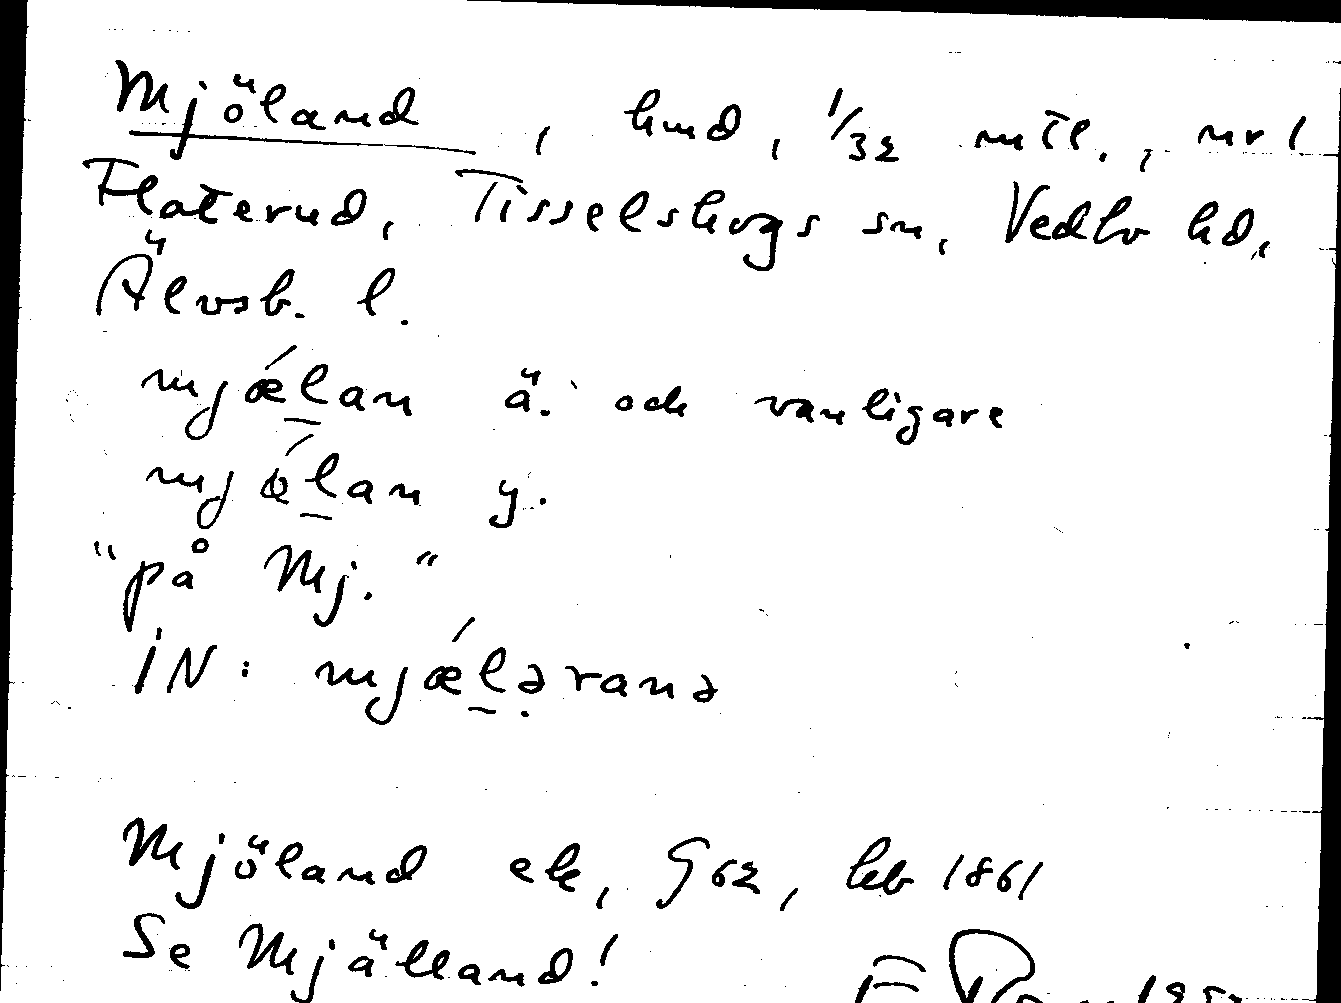 Mjöland, hmd, 1/32 mtl., nr 1
Flaterud, Tisselskogs sn, Vedbo hd,
Älvsb. l.
mjǽl̠an ä. och vanligare
mjǿl̠an y.
"på Mj."
IN: mjǽl̠ə̣ranə
Mjöland ek, G 62, kb 1861
Se Mjälland!